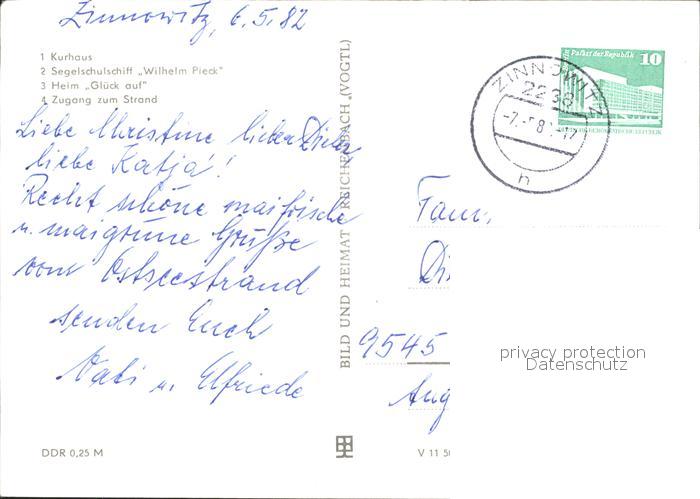 Zinnowitz, 6.5.82
1 Kurhaus
2 Segelschulschiff „Wilhelm Pieck"
3 Heim „Glück auf"
4 Zugang zum Strand
Liebe Christine, lieber Dieter,
liebe Katja!
Recht schöne maifrische
u. maigrüne Grüße
vom Ostseestrand
senden Euch
u. Elfriede
DDR 0,25 M
BILD UND HEIMAT REICHENBACH (VOGTL)
V 11 50
Palast der Republik 10
DEUTSCHE DEMOKRATISCHE REPUBLIK
ZINNOWITZ
2238
h
Fam.
Di
9545
Aug
privacy protection
Datenschutz